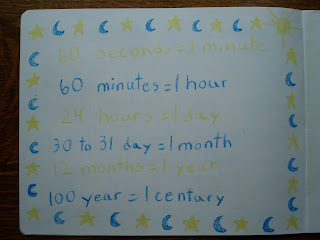 60 seconds = 1 minute
60 minutes = 1 hour
24 hours = 1 day
30 to 31 day = 1 month
12 months = 1 year
100 year = 1 centary